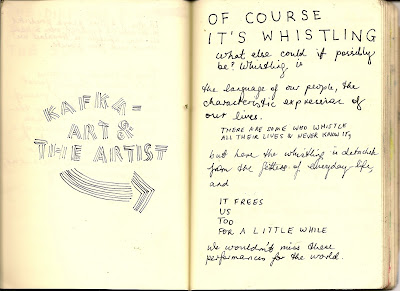 KAFKA-
ART &
THE ARTIST
OF COURSE
IT'S WHISTLING
What else could it possibly
be? Whistling is
the language of our people, the
characteristic expression of
our lives.
THERE ARE SOME WHO WHISTLE
ALL THEIR LIVES & NEVER KNOW IT,
but here the whistling is detached
from the fetters of everyday life,
and
IT FREES
US
TOO
FOR A LITTLE WHILE
We wouldn't miss these
performances for the world.